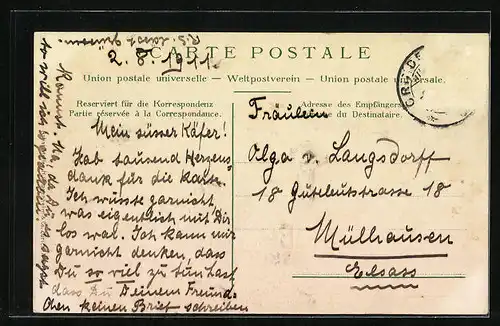 CARTE POSTALE
2. 8. 1911.
Union postale universelle. – Weltpostverein – Union postale universale.
Reserviert für die Korrespondenz
Partie réservée à la Correspondance.
Adresse des Empfängers
du Destinataire.
Mein süsser Käfer!
Hab tausend Herzens-
dank für die Karte.
Ich wüsste garnicht
was eigentlich mit Dir
los war. Ich kann mir
garnicht denken, dass
Du so viel zu tun hast
dass Du Deinem Freund-
chen keinen Brief schreiben
Fräulein
Olga v. Langsdorff
18 Gutleutstrasse 18
Mülhausen
Elsass